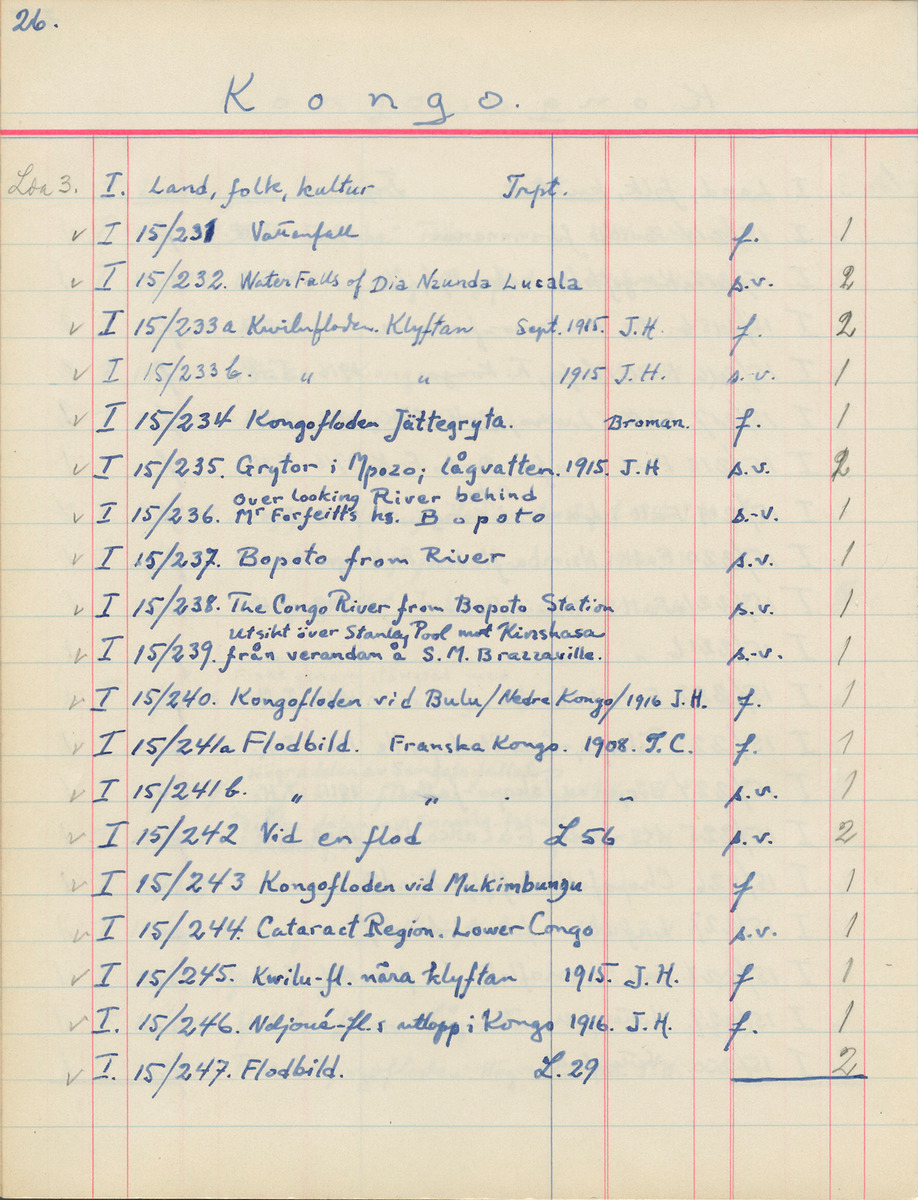 26.
Kongo.
Lda 3. I. Land, folk, kultur Trpt.
v I 15/231 Vattenfall f. 1
v I 15/232. Water Falls of Dia Nzunda Lucala s.v. 2
v I 15/233a Kwilufloden. Klyftan Sept. 1915. J.H. f. 2
v I 15/233b. " " 1915 J.H. s.v. 1
v I 15/234 Kongofloden Jättegryta. Broman. f. 1
v I 15/235. Grytor i Mpozo; lågvatten. 1915. J.H s.v. 2
over looking River behind
v I 15/236. Mr Forfeitts hs. Bopoto s.-v. 1
v I 15/237. Bopoto from River s.v. 1
v I 15/238. The Congo River from Bopoto Station s.v. 1
Utsikt över Stanley Pool mot Kinshasa
v I 15/239. från verandam å S.M. Brazzaville. s.-v. 1
v I 15/240. Kongofloden vid Bulu/Nedre Kongo/1916 J.H. f. 1
v I 15/241a Flodbild. Franska Kongo. 1908. T.C. f. 1
v I 15/241b. " " . " s.v. 1
v I 15/242 Vid en flod L 56 s.v. 2
v I 15/243 Kongofloden vid Mukimbungu f 1
v I 15/244. Cataract Region. Lower Congo s.v. 1
v I 15/245. Kwilu-fl. nära klyftan 1915. J.H. f 1
v I. 15/246. Ndjoué-fl.s utlopp i Kongo 1916. J.H. f. 1
v I. 15/247. Flodbild. L. 29 2